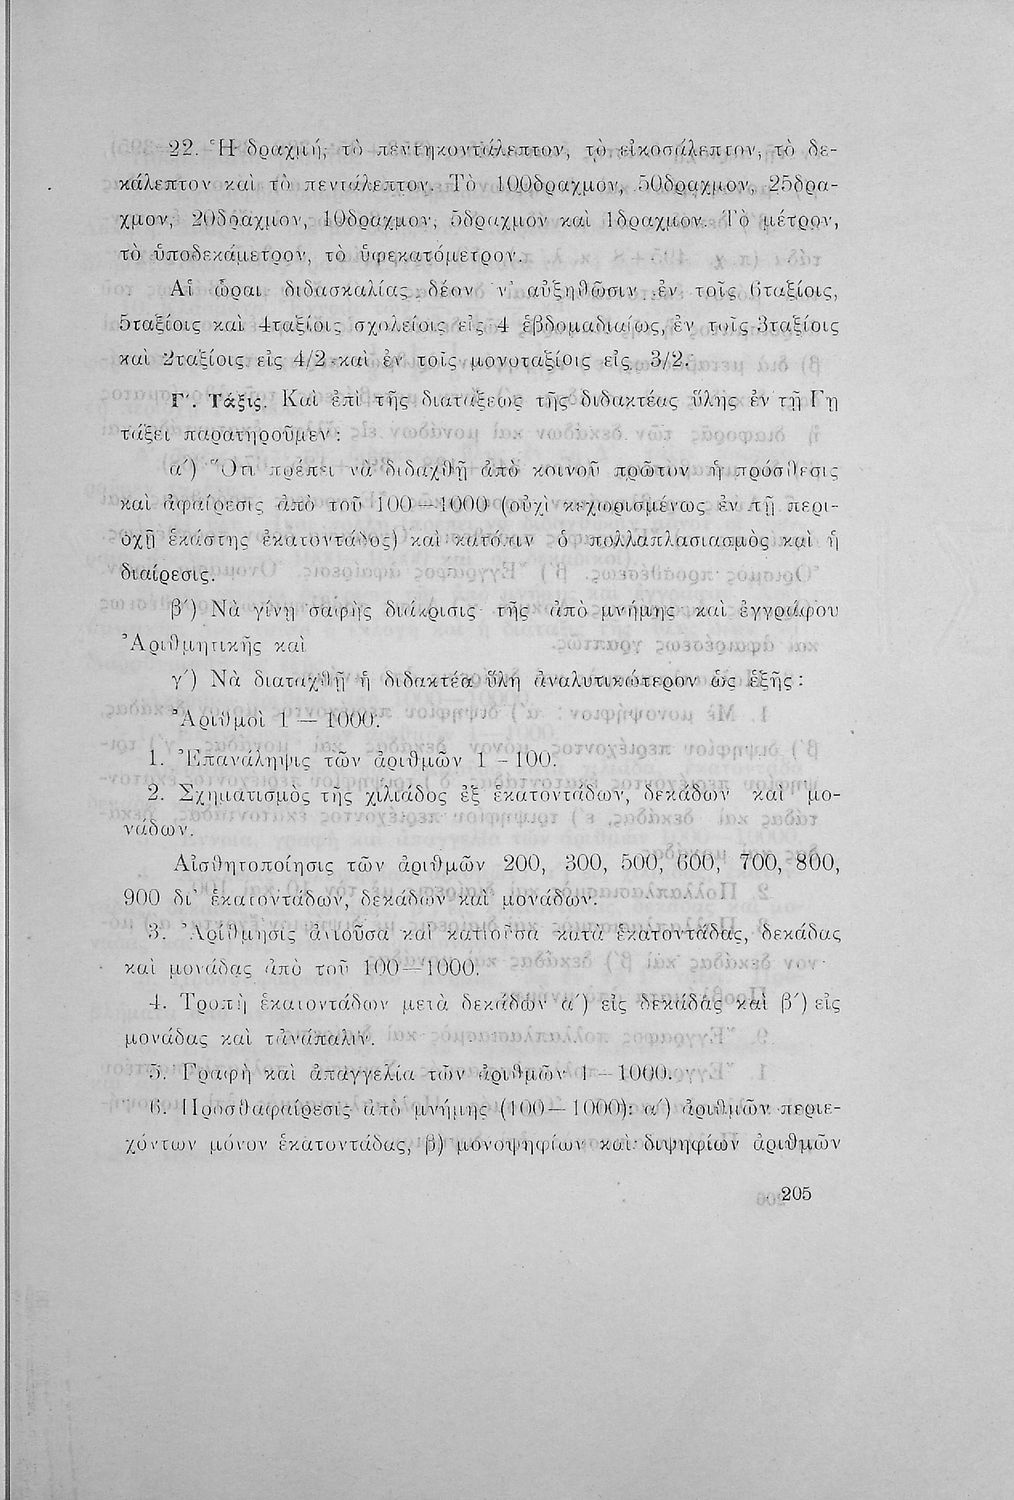 22. Ἡ δραχμή, τὸ πεντηκοντάλεπτον, τὸ εἰκοσάλεπτον, τὸ δε-
κάλεπτον καὶ τὸ πεντάλεπτον. Τὸ 100δραχμον, 50δραχμον, 25δρα-
χμον, 20δραχμον, 10δραχμον, 5δραχμον καὶ 1δραχμον. Τὸ μέτρον,
τὸ ὑποδεκάμετρον, τὸ ὑφεκατόμετρον.
Αἱ ὧραι διδασκαλίας δέον ν' αὐξηθῶσιν ἐν τοῖς 6ταξίοις,
5ταξίοις καὶ 4ταξίοις σχολείοις εἰς 4 ἑβδομαδιαίως, ἐν τοῖς 3ταξίοις
καὶ 2ταξίοις εἰς 4/2 καὶ ἐν τοῖς μονοταξίοις εἰς 3/2.
Γ'. Τάξις. Καὶ ἐπὶ τῆς διατάξεως τῆς διδακτέας ὕλης ἐν τῇ Γῃ
τάξει παρατηροῦμεν :
α') Ὅτι πρέπει νὰ διδαχθῇ ἀπὸ κοινοῦ πρῶτον ἡ πρόσθεσις
καὶ ἀφαίρεσις ἀπὸ τοῦ 100 — 1000 (οὐχὶ κεχωρισμένως ἐν τῇ περι-
οχῇ ἑκάστης ἑκατοντάδος) καὶ κατόπιν ὁ πολλαπλασιασμὸς καὶ ἡ
διαίρεσις.
β') Νὰ γίνῃ σαφὴς διάκρισις τῆς ἀπὸ μνήμης καὶ ἐγγράφου
Ἀριθμητικῆς καὶ
γ') Νὰ διαταχθῇ ἡ διδακτέα ὕλη ἀναλυτικώτερον ὡς ἑξῆς :
Ἀριθμοὶ 1 — 1000.
1. Ἐπανάληψις τῶν ἀριθμῶν 1 - 100.
2. Σχηματισμὸς τῆς χιλιάδος ἐξ ἑκατοντάδων, δεκάδων καὶ μο-
νάδων.
Αἰσθητοποίησις τῶν ἀριθμῶν 200, 300, 500, 600, 700, 800,
900 δι' ἑκατοντάδων, δεκάδων καὶ μονάδων.
3. Ἀρίθμησις ἀνιοῦσα καὶ κατιοῦσα κατὰ ἑκατοντάδας, δεκάδας
καὶ μονάδας ἀπὸ τοῦ 100 — 1000.
4. Τροπὴ ἑκατοντάδων μετὰ δεκάδων α') εἰς δεκάδας καὶ β') εἰς
μονάδας καὶ τἀνάπαλιν.
5. Γραφὴ καὶ ἀπαγγελία τῶν ἀριθμῶν 1 — 1000.
6. Προσθαφαίρεσις ἀπὸ μνήμης (100 — 1000): α') ἀριθμῶν περιε-
χόντων μόνον ἑκατοντάδας, β) μονοψηφίων καὶ διψηφίων ἀριθμῶν
205